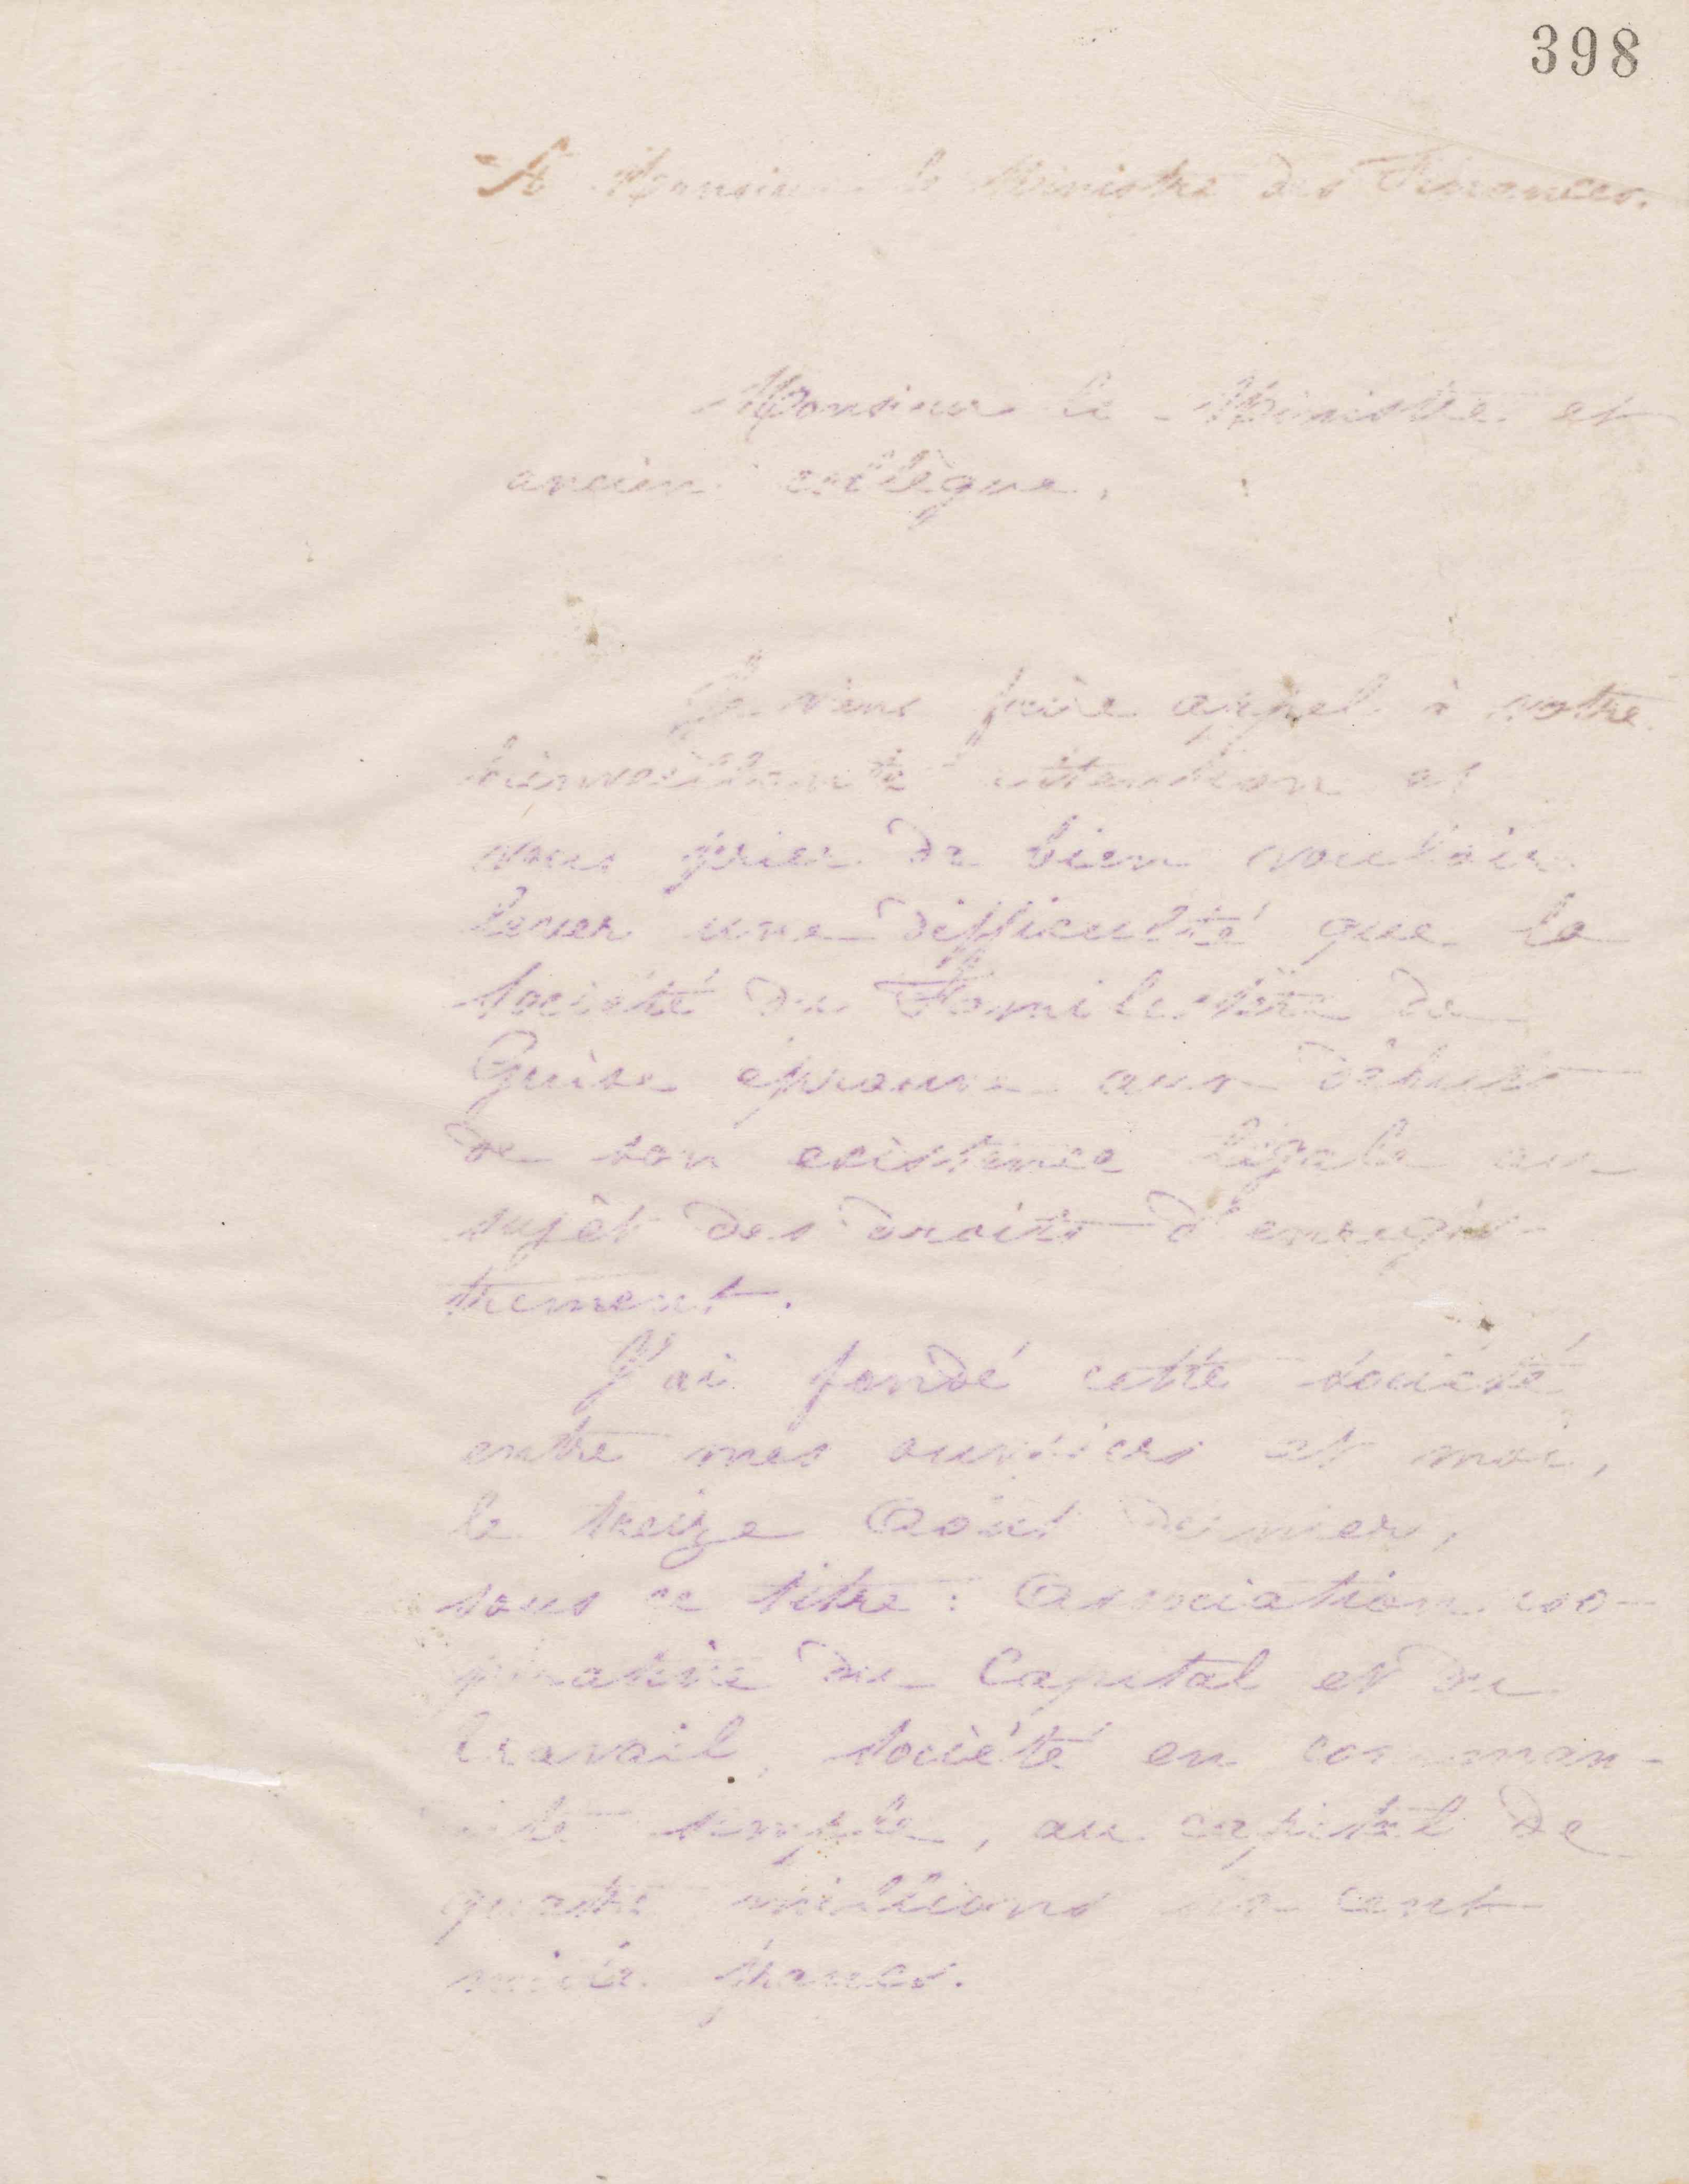 398
A Monsieur le Ministre des Finances.
Monsieur le Ministre et
ancien collègue,
Je viens faire appel à votre
bienveillante attention et
vous prier de bien vouloir
lever une difficulté que la
Société du Familistère de
Guise éprouve aux débuts
de son existence légale au
sujet des droits d'enregis-
trement.
J'ai fondé cette société
entre mes ouvriers et moi,
le treize Août dernier,
sous ce titre : Association coo-
pérative du Capital et du
travail, société en comman-
dite simple, au capital de
quatre millions six cent
mille francs.